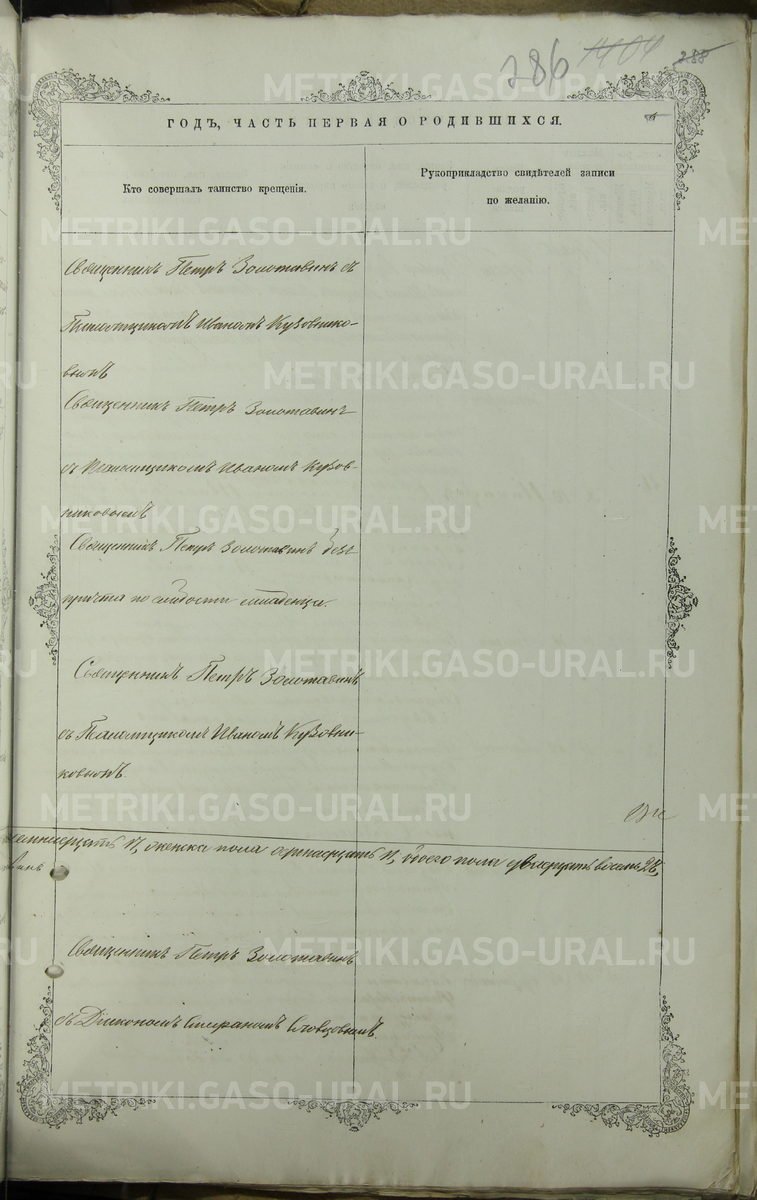 286 1404 288
ГОДЪ, ЧАСТЬ ПЕРВАЯ О РОДИВШИХСЯ.
Кто совершалъ таинство крещенія.
Рукоприкладство свидѣтелей записи
по желанію.
Священникъ Петръ Золотавинъ съ
Псаломщикомъ Иваномъ Кузовнико-
вымъ
Священникъ Петръ Золотавинъ
съ Псаломщикомъ Иваномъ Кузов-
никовымъ
Священникъ Петръ Золотавинъ безъ
причта по слабости младенца.
Священникъ Петръ Золотавинъ
съ Псаломщикомъ Иваномъ Кузовни-
ковымъ
женска пола обоего пола двадцать восемь 28,
Священникъ Петръ Золотавинъ
съ Діакономъ Словцовымъ.
METRIKI.GASO-URAL.RU